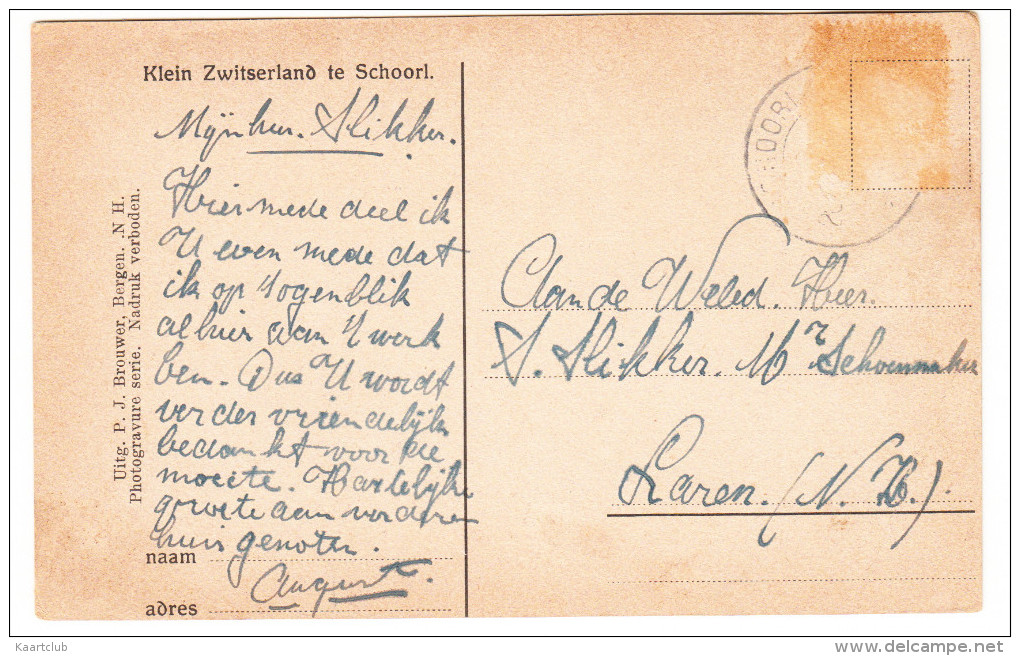 Klein Zwitserland te Schoorl.
Mijnheer. Slikker.
Hiermede deel ik
U even mede dat
ik op 't ogenblik
alhier aan 't werk
ben. Dus U wordt
verder vriendelijk
bedankt voor de
moeite. Hartelijke
groete aan verderen
huisgenoten.
August.
naam
adres
Uitg. P. J. Brouwer, Bergen. N H.
Photogravure serie. Nadruk verboden.
SCHOORL
Aan de Weled. Heer.
S. Slikker. Mr Schoenmaker
Laren. (N. H.)
Kaartclub
www.delcampe.net